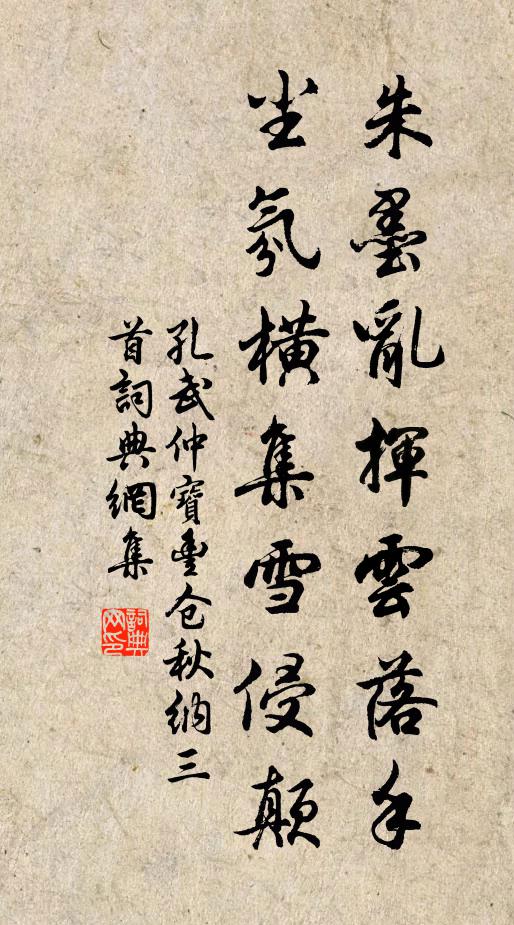 朱墨亂揮雲落手
坐氛橫集雪侵顛
孔武仲寶豊仓秋納三
首詞典網集
詞典网印